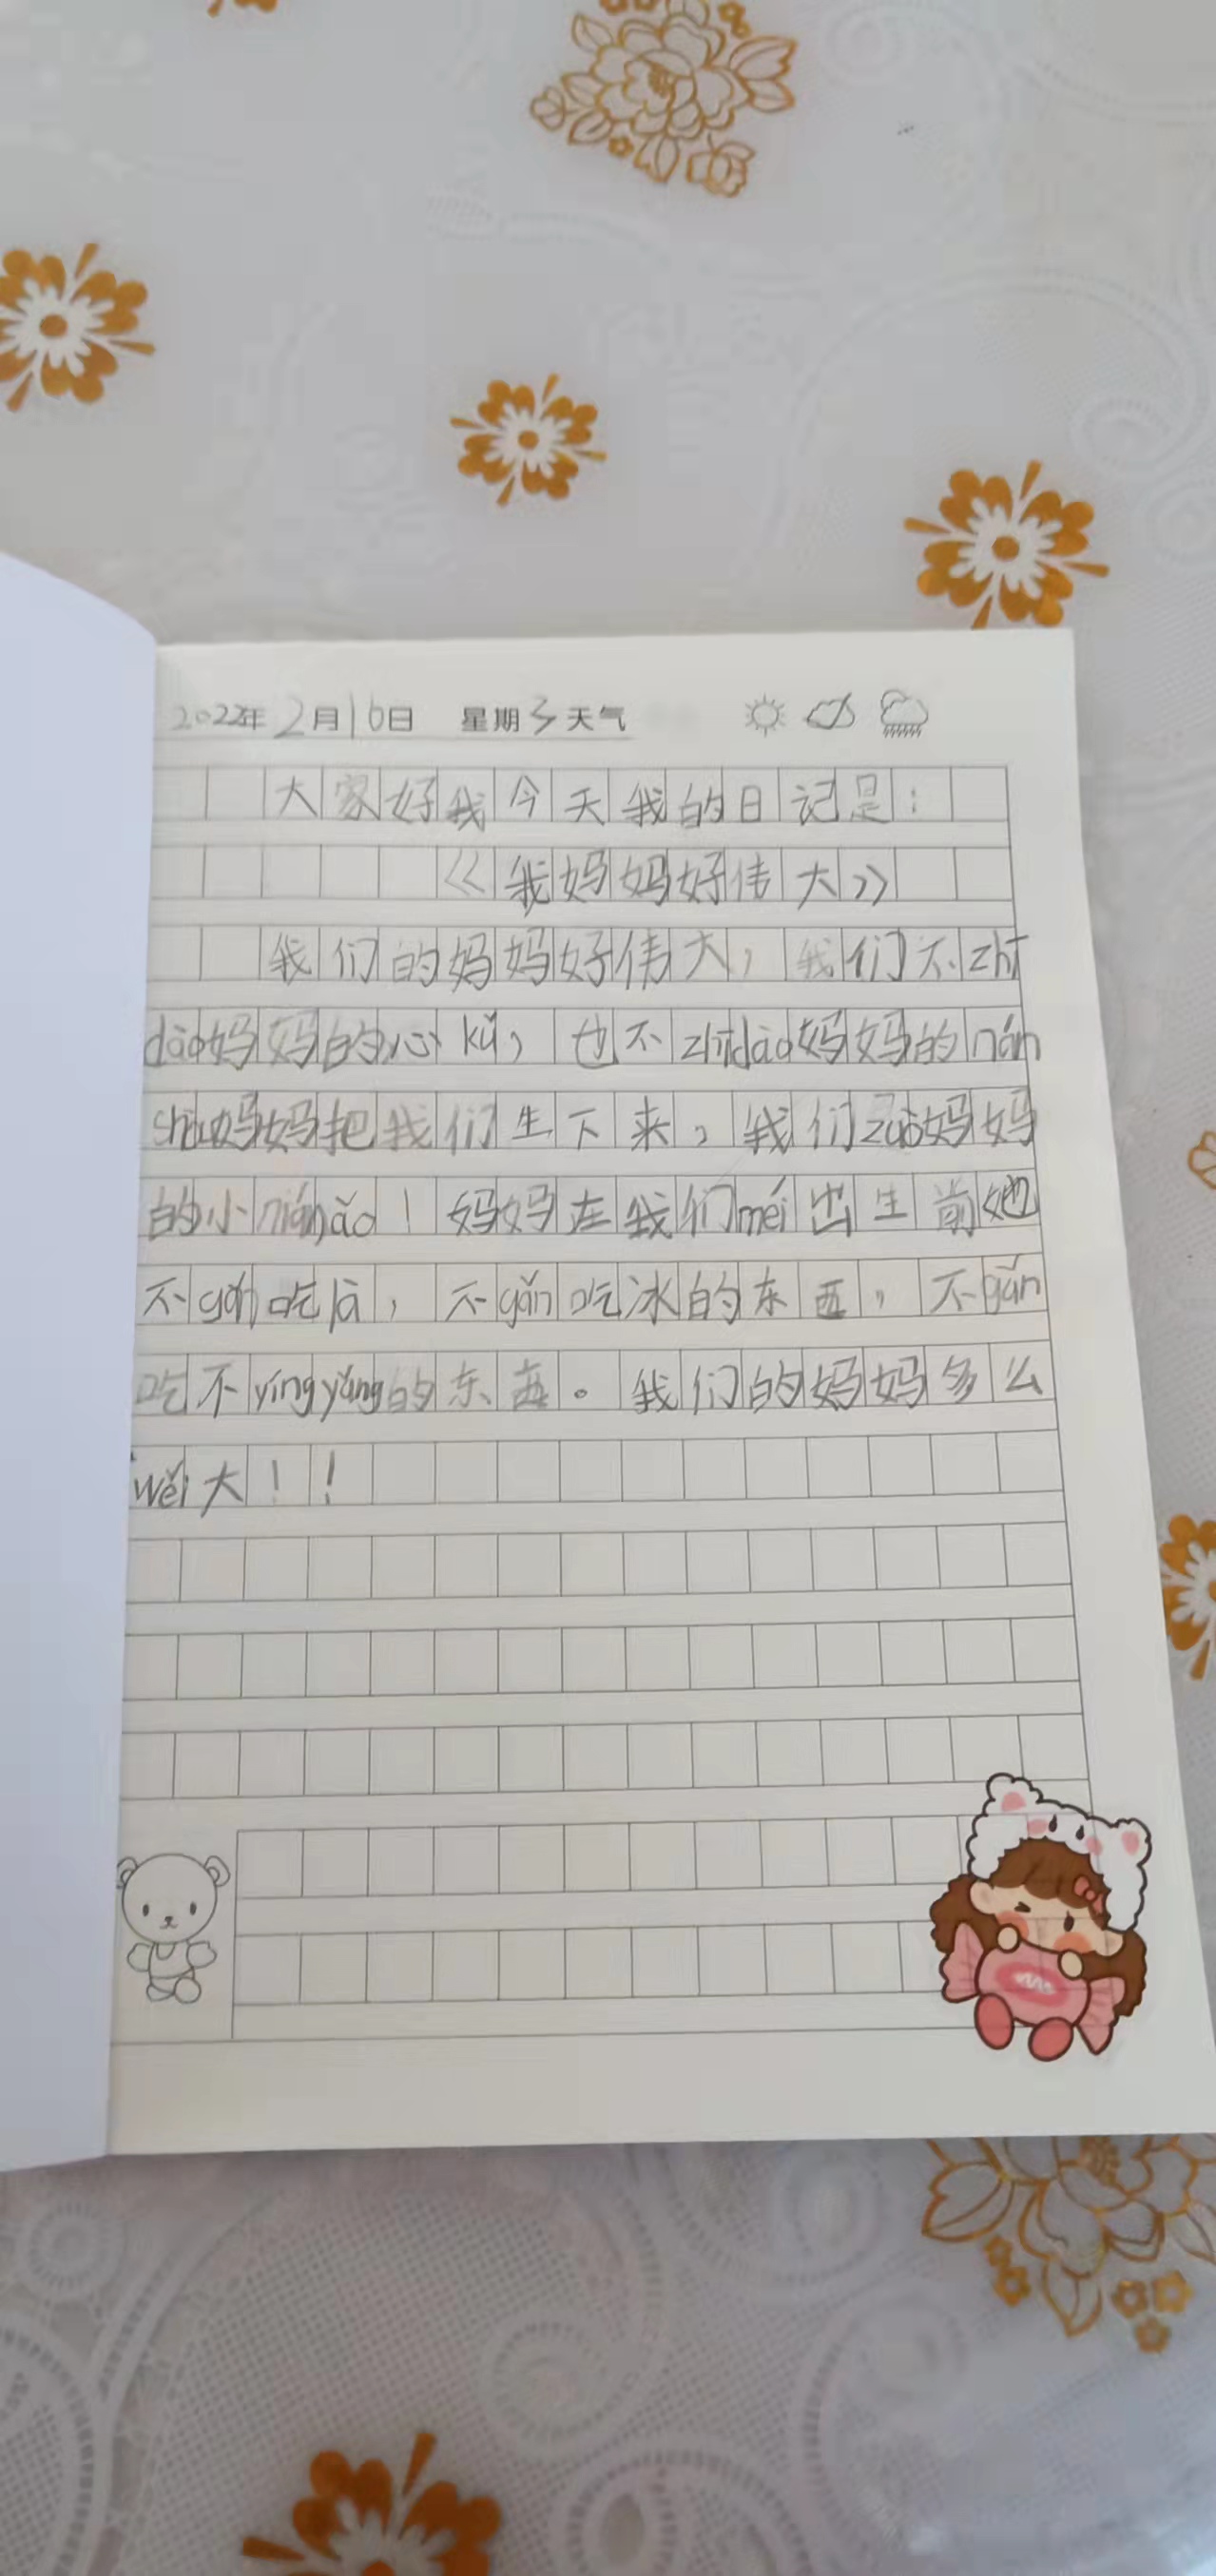 2022年 2月16日 星期3天气
大家好我今天我的日记是：
《我妈妈好伟大》
我们的妈妈好伟大，我们不zhī
dào妈妈的心kǔ，也不zhīdào妈妈的nán
shòu妈妈把我们生下来，我们zuò妈妈
的小mián ǎo！妈妈在我们méi出生前她
不gǎn吃là，不gǎn吃冰的东西，不gǎn
吃不yíngyǎng的东西。我们的妈妈多么
wěi大！！